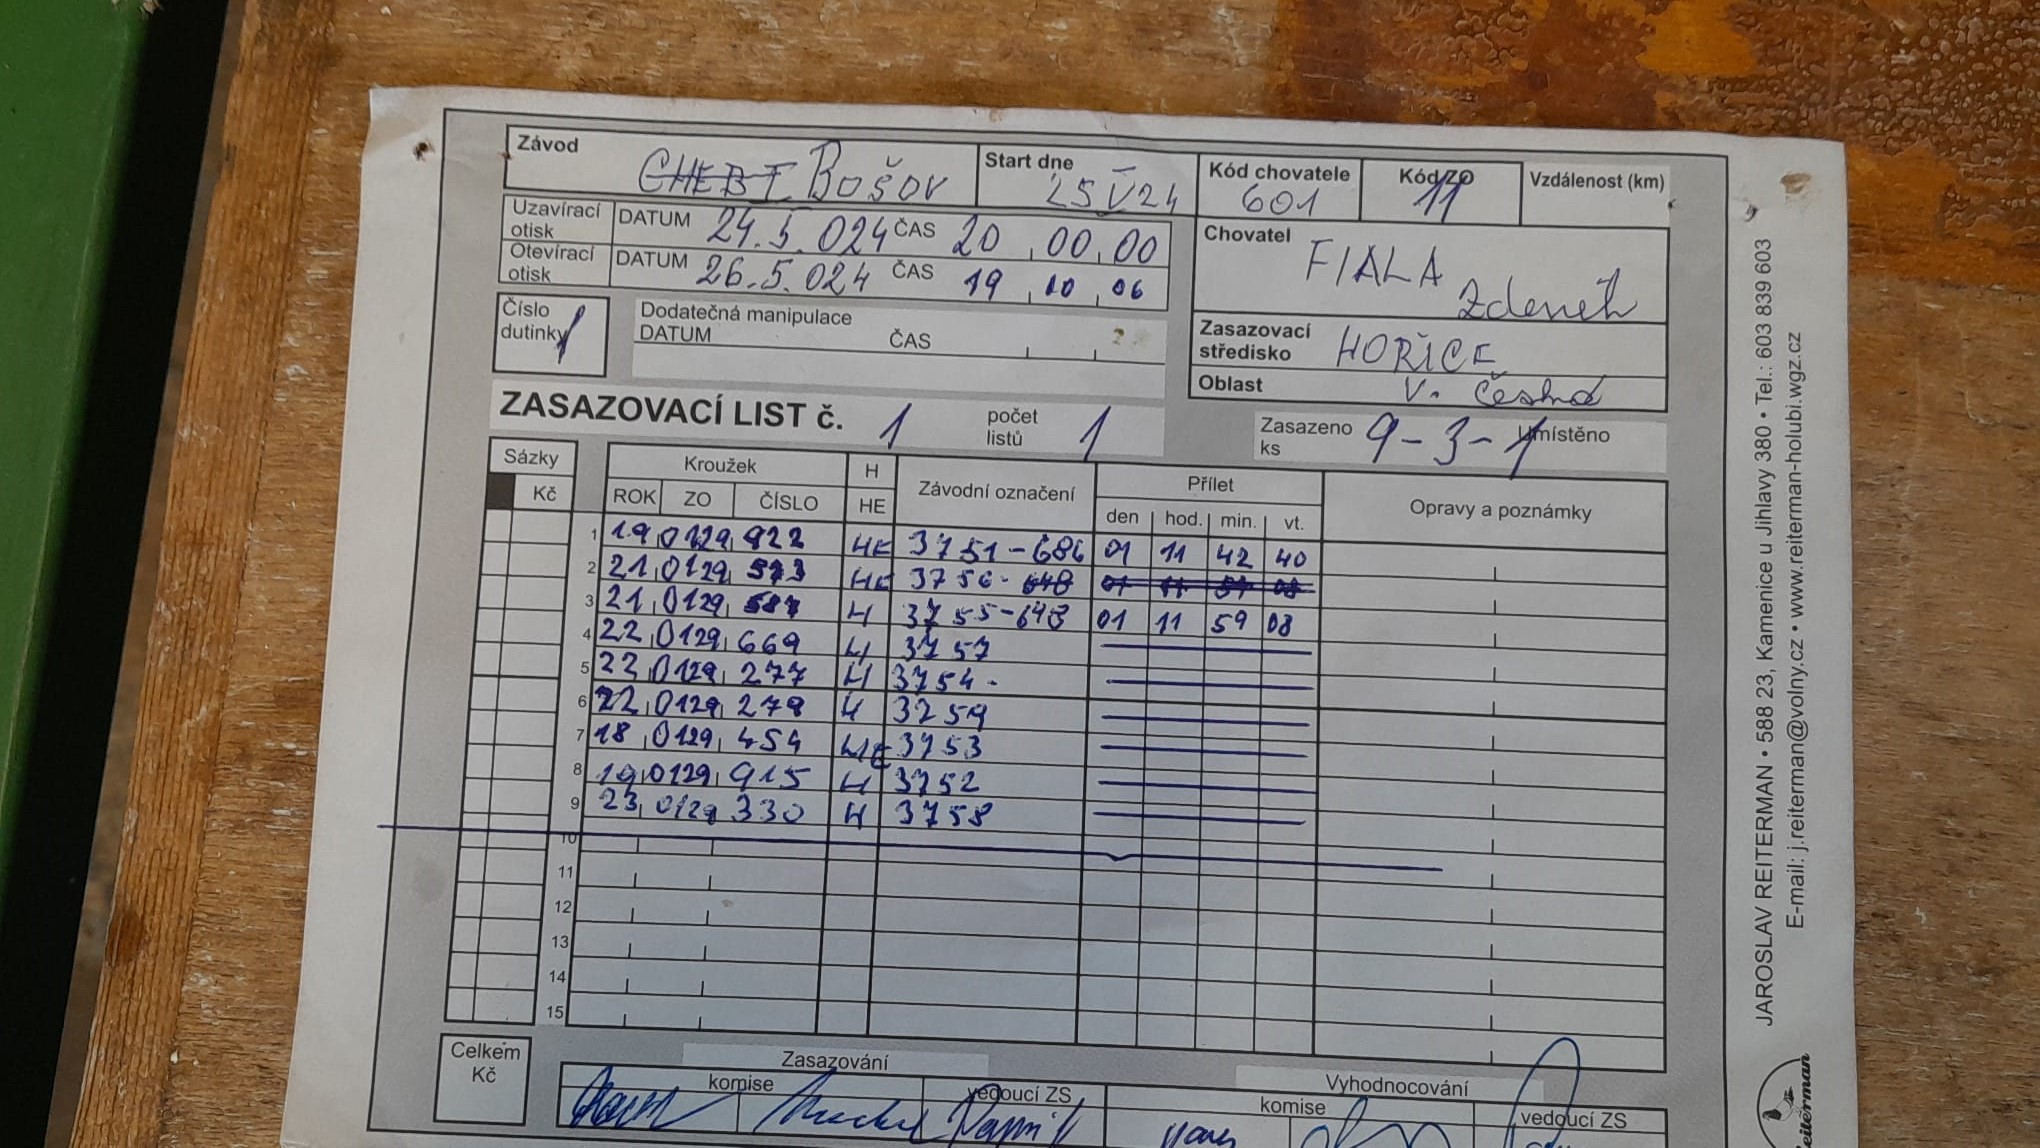 Závod CHEB I Bošov Start dne 25 V 24 Kód chovatele 601 Kód ZO 11 Vzdálenost (km)
Uzavírací otisk DATUM 24.5.024 ČAS 20 00 00
Otevírací otisk DATUM 26.5.024 ČAS 19 10 06
Chovatel FIALA Zdeněk
Číslo dutinky 1
Dodatečná manipulace
DATUM ČAS
Zasazovací středisko HOŘICE
Oblast V. Česká
ZASAZOVACÍ LIST č. 1 počet listů 1 Zasazeno ks 9-3-1 Umístěno
Sázky Kroužek H Závodní označení Přílet Opravy a poznámky
Kč ROK ZO ČÍSLO HE den hod. min. vt.
1 19 0129 922 HE 3751-686 01 11 42 40
2 21 0129 573 HE 3756-648 01 11 59 08
3 21 0129 587 H 3755-648 01 11 59 08
4 22 0129 669 H 3757
5 22 0129 277 H 3754-
6 22 0129 279 H 3759
7 18 0129 454 HE 3753
8 19 0129 915 H 3752
9 23 0129 330 H 3758
10
11
12
13
14
15
Celkem Kč
Zasazování Vyhodnocování
komise vedoucí ZS komise vedoucí ZS
JAROSLAV REITERMAN • 588 23, Kamenice u Jihlavy 380 • Tel.: 603 839 603
E-mail: j.reiterman@volny.cz • www.reiterman-holubi.wgz.cz
Reiterman